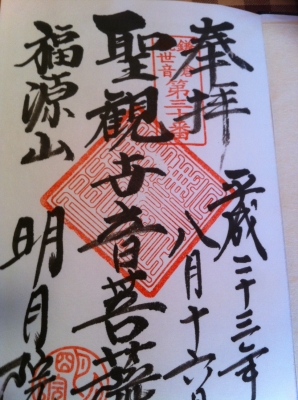 奉拝
鎌倉
観世音
第三十番
平成二十三年
八月十六日
聖観世音菩薩
福源山
明月院